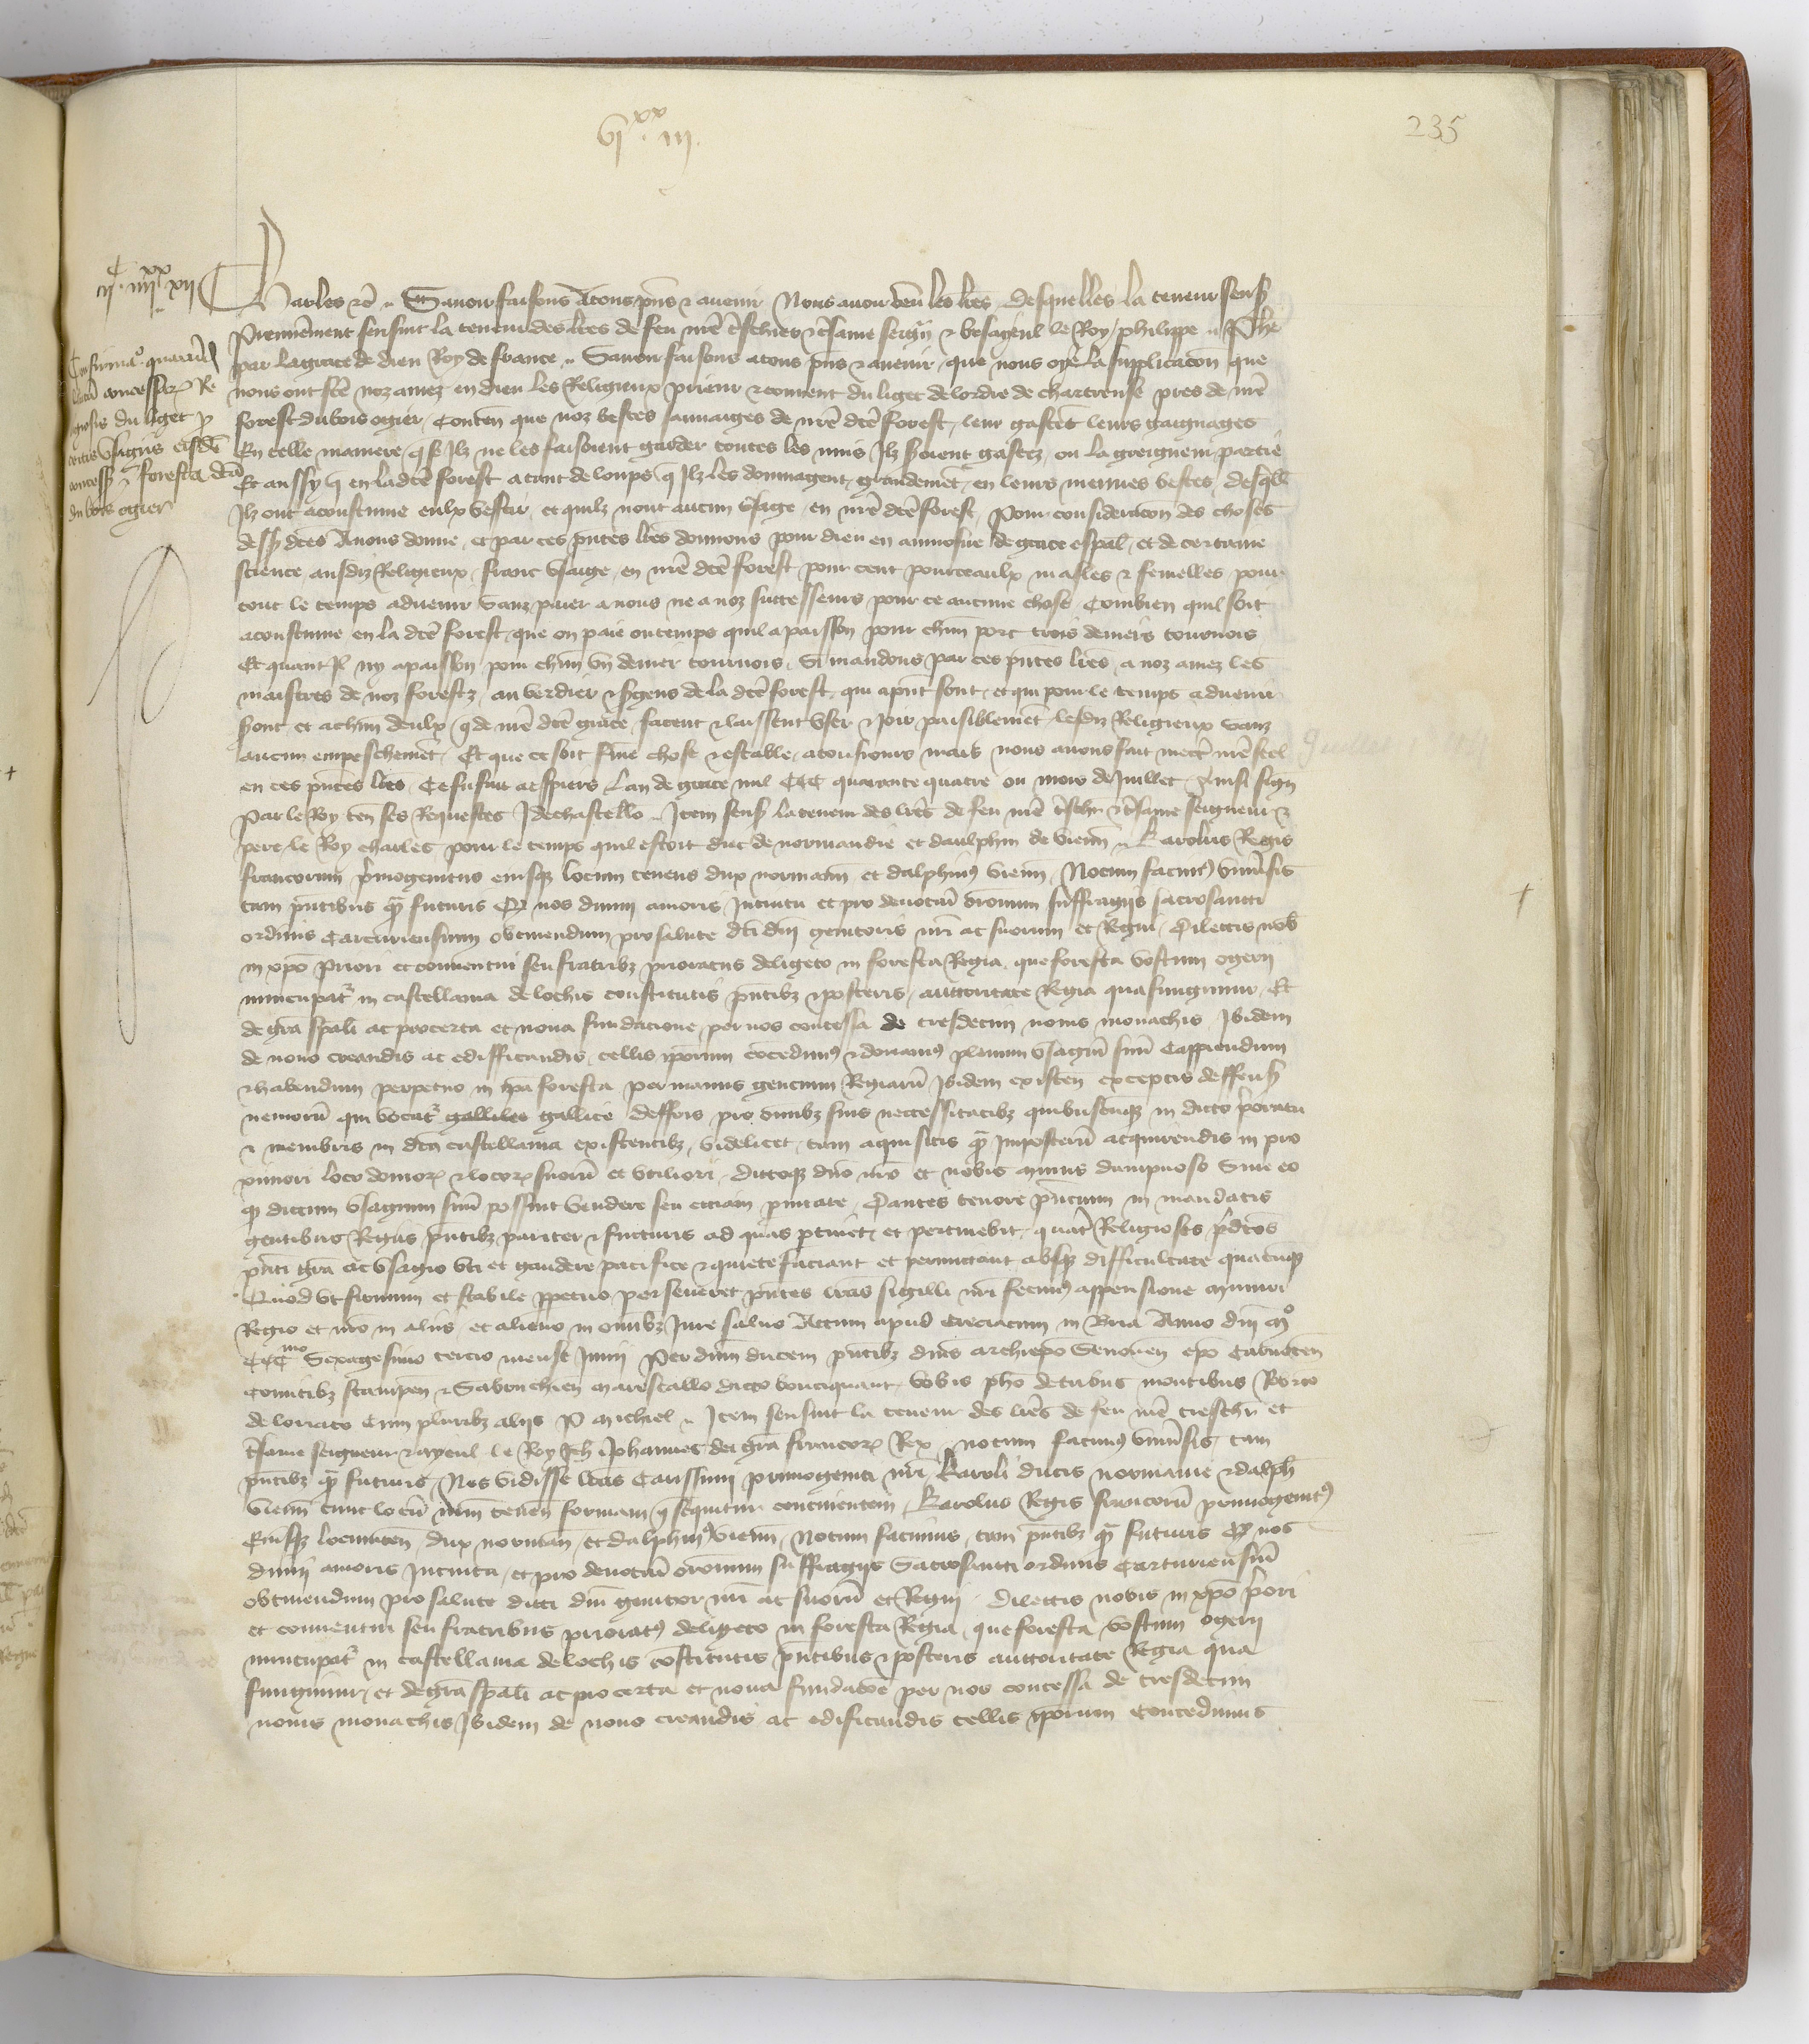 vjxx iij.
235
ijc iiijxx xij
Confirmaco quarundã
lrãrũ concessarꝝ Re
giosis du liget p̱
certis vsagiis eisdẽ
concess̃ ĩ foresta dcã
du bois ogier
Charles etc̃. Sauoir faisons a tous p̃ns & auenir Nous auoir veu les lr̃es desquelles la teneur sensˀ
Premierement sensuit la teneur des lr̃es de feu nr̃e treschier & tr̃same seigñ & besayeul le Roy philippe .. Phe
par la grace de dieu Roy de france .. Sauoir faisons a tous p̃ns & auenir que nous oye la supplicacõn que
nous ont fc̃e noz amez en dieu les Religieux prieur & conuent du liget de lordre de chartreuse pres de nr̃e
forest du bois ogier Conteñ que noz bestes sauuaiges de nr̃e dc̃e forest leur gastẽt leurs gaignages
En telle maniere q̃ se Jlz ne les faisoient garder toutes les nuis Jlz s̃oient gastez ou la greigneur partie
Et aussy q̃ en ladc̃e forest a tant de loups q̃ Jlz les dommagent grandemẽt en leurs menues bestes desq̃ll̃
Jlz ont acoustume eulx vestir et quilz nont aucun vsage en nr̃e dc̃e forest Pour consideracõn des choses
dessˀ dc̃es Auons donne et par ces p̃ntes lr̃es donnons pour dieu en aumosne de grace esp̃al et de certaine
science ausdiz Religieux franc vsaige en nr̃e dc̃e forest pour cent pourceaulx masles & femelles pour
tout le temps aduenir sanz paier a nous ne a noz successeurs pour ce aucune chose Combien quil soit
acoustume en la dc̃e forest que on paie ou temps quil a paisson pour chũn porc trois deniers tournois
Et quant Jl ny a paisson pour chũn vn denier tournois Si mandons par ces p̃ntes lr̃es a noz amez les
maistres de noz forestz au verdier & sˀgens de la dc̃e forest qui a p̃nt sont et qui pour le temps aduenir
sˀont et a chũn deulx q̃ de nr̃e dc̃e grace facent & laissent vser & Joir paisiblemẽt lesdiz Religieux sanz
aucun empeschemẽt Et que ce soit ferme chose & estable a tousiours mais nous auons fait mectr̃ nr̃e seel
en ces p̃ntes lr̃es Ce fu fait a Lan de grace mil CCC quarante quatre ou mois de Juillet Ainsi sigñ
Par le Roy teñ ses Requestes J de chastello .. Jtem sensˀ la teneur des lr̃es de feu nr̃e tr̃schr̃ & tr̃same seigneur &
pere le Roy charles pour le temps quil estoit duc de normandie et daulphin de vienñ .. Karolus Regis
francorum p̃mogenitus eiusqꝫ locum tenens dux normañn et dalphinꝰ vieñn Notum facimꝰ vniũsis
tam p̃ntibus qͣ̃ futuris Qꝫ nos diuini amoris Jntuitu et pro deuotaꝝ or̃onum suffragiis sacrosancti
ordinis Carturiensium obtinendum pro salute dc̃i dñi genitoris nr̃i ac suorum et Regni Dilectis nob̃
in xp̃o Priori et conuentui seu fratribꝫ prioratus de ligeto in foresta Regia que foresta boscum ogerii
nuncupatˀ in castellania de lochis constitutis p̃ntibꝫ & posteris auctoritate Regia qua fungimur Et
de gr̃a sp̃ali ac pro certa et noua fundacione per nos concessa de tresdecim nouis monachis Jbidem
de nouo creandis ac edifficandis cellis ip̃orum cõcedimꝰ & donamꝰ plenum vsagiũ suũ Cappiendum
& habendum perpetuo in ip̃a foresta per manus gencium Regiarũ Jbidem existeñ exceptis deffensˀ
nemorũ qui vocãtˀ gallice deffois pro om̃ibꝫ suis neccessitatibꝫ quibuscũqꝫ in dicto p̃oratu
& membris in dc̃a castellania existentibꝫ videlicet tam aquisitis qͣ̃ Jmposterũ acquirendis in pro
ximiori loco domorꝝ & locorꝝ suorũ et vtiliori dictoqꝫ dño nr̃o et nobis minus dampnoso Sine eo
qꝫ dictum vsagium suũ possint vendere seu etiam Dantes tenore p̃ncium in mandatis
gentibus Regiis p̃ntibꝫ pariter & futuris ad quas p̱tinet et pertinebit quat̃ Religiosos p̃dc̃os
p̃nti gr̃a ac vsagio vti et gaudere pacifice & quiete faciant et permictant absqꝫ difficultate quacũqꝫ
Quod vt firmum et stabile p̱petuo perseueret p̃ntes lr̃as sigilli nr̃i fecimꝰ appensione muniri
Regio et nr̃o in aliis et alieno in om̃ibꝫ Jure saluo Actum apud Creciacum in Bria Anno dñi Mo
CCCmo Sexagesimo tercio mense Junij Per dñm ducem p̃ntibꝫ dñis archiep̃o Senoneñ ep̃o Carnoteñ
Comitibꝫ stampeñ & Sabruchieñ Marescallo dicto bouciquaut vobis ph̃o de tribus montibus Petro
de lorriaco Cum pluribꝫ aliis P Michiel .. Jtem sensuit la teneur des lr̃es de feu nr̃e treschr̃ et
tr̃same seigneur & ayeul le Roy Jeh̃ Johannes dei gr̃a francorꝝ Rex notum facimꝰ vniũsis tam
p̃ntibꝫ qͣ̃ futuris Nos vidisse lr̃as Carissimi primogeniti nr̃i Karoli ducis normanie & dalph̃
vieñn tunc locũ nr̃m teneñ formam q̃ sequitur continentem Karolus Regis francorũ primogenitꝰ
Eiusqꝫ locumteñ dux normañ et dalphinꝰ vieñn Notum facimus tam p̃ntibꝫ qͣ̃ futuris Qꝫ nos
diuini amoris Jntuitu et pro deuotaꝝ or̃onum suffragiis Sacrosancti ordinis Carturiensiũ
obtinendum pro salute dicti dñi genitor̃ nr̃i ac suorũ et Regni Dilectis nobis in xp̃o p̃ori
et conuentui seu fratribus prioratꝰ de ligeto in foresta Regia que foresta boscum ogerii
nuncupatˀ in castellania de lochis cõstitutis p̃ntibus & posteris auctoritate Regia qua
fungimur et de gr̃a sp̃ali ac pro certa et noua fundacõe per nos concessa de tresdecim
nouis monachis Jbidem de nouo creandis ac edificandis cellis ip̃orum Concedimus